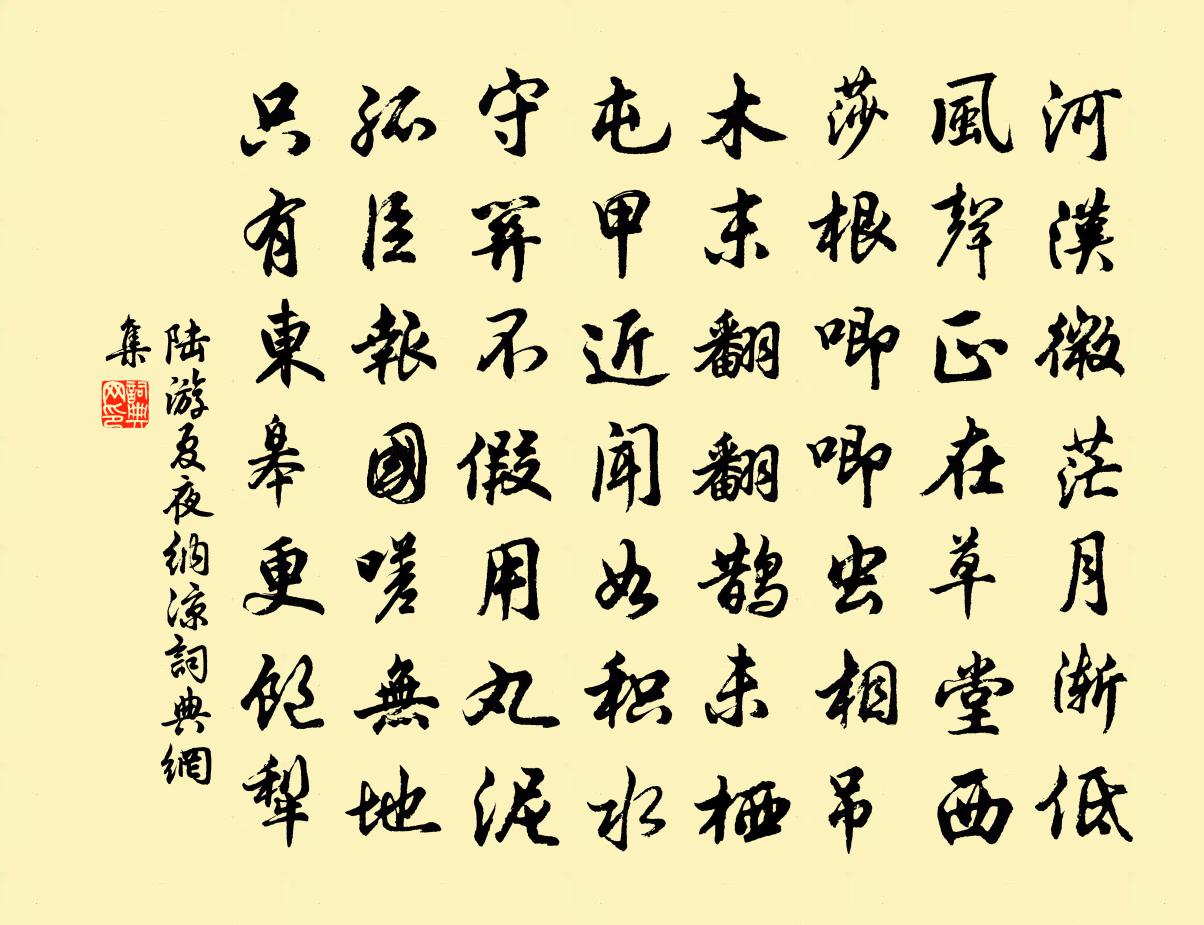 河漢微茫月渐低
風聲正在草堂西
莎根唧唧虫相吊
木末翻翻鵲未栖
屯甲近聞如积水
守關不假用丸泥
孤臣報國嗟無地
只有東皋更飽犁
陆游夏夜纳凉詞典網
集
詞典
网印